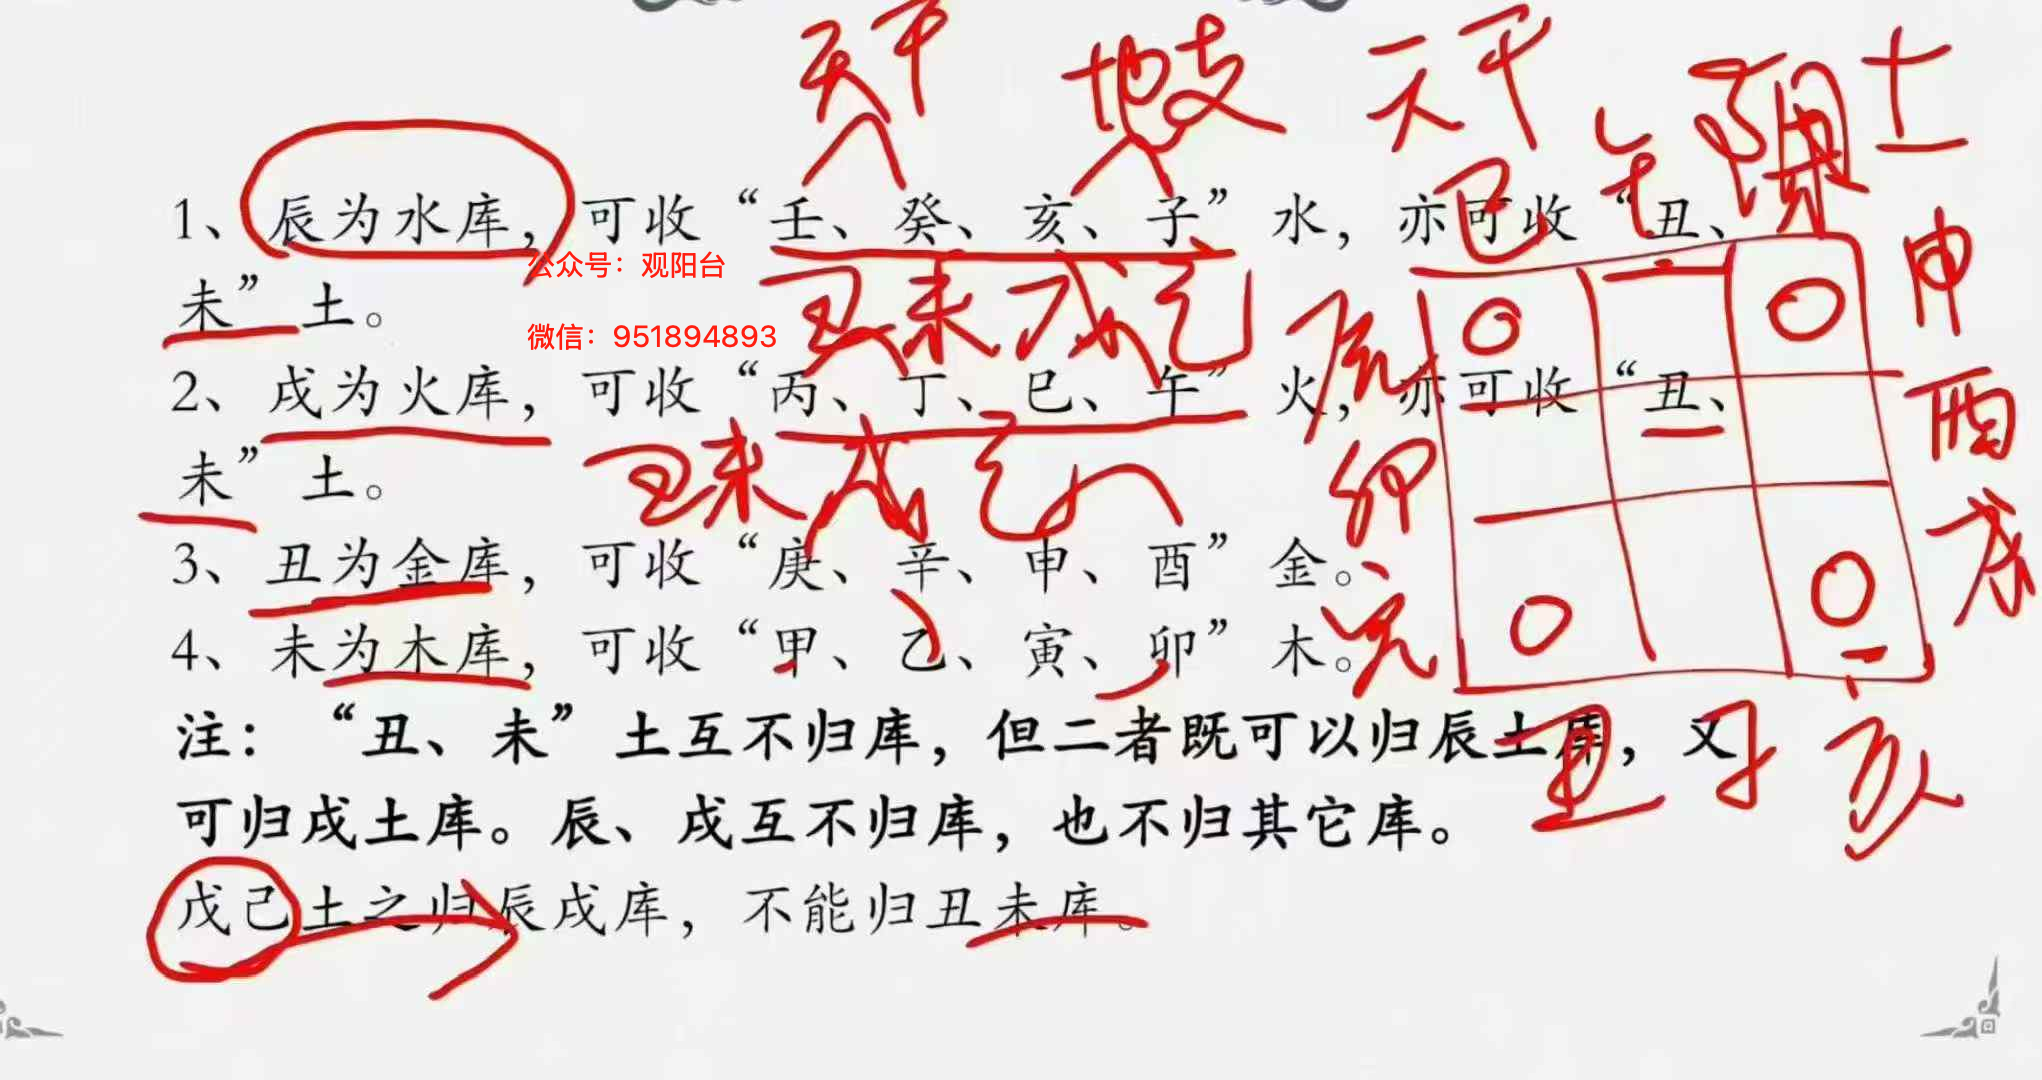 天干 地支 天干 土
1、辰为水库，可收“壬、癸、亥、子”水，亦可收“丑、
公众号：观阳台
丑未戊己
未”土。
微信：951894893
2、戌为火库，可收“丙、丁、巳、午”火，亦可收“丑、
丑未戊己
未”土。
3、丑为金库，可收“庚、辛、申、酉”金。
4、未为木库，可收“甲、乙、寅、卯”木。
注：“丑、未”土互不归库，但二者既可以归辰土库，又
可归戌土库。辰、戌互不归库，也不归其它库。
戊己土之归辰戌库，不能归丑未库。
巳 午
申
酉
戌
辰
卯
寅
丑 子 亥